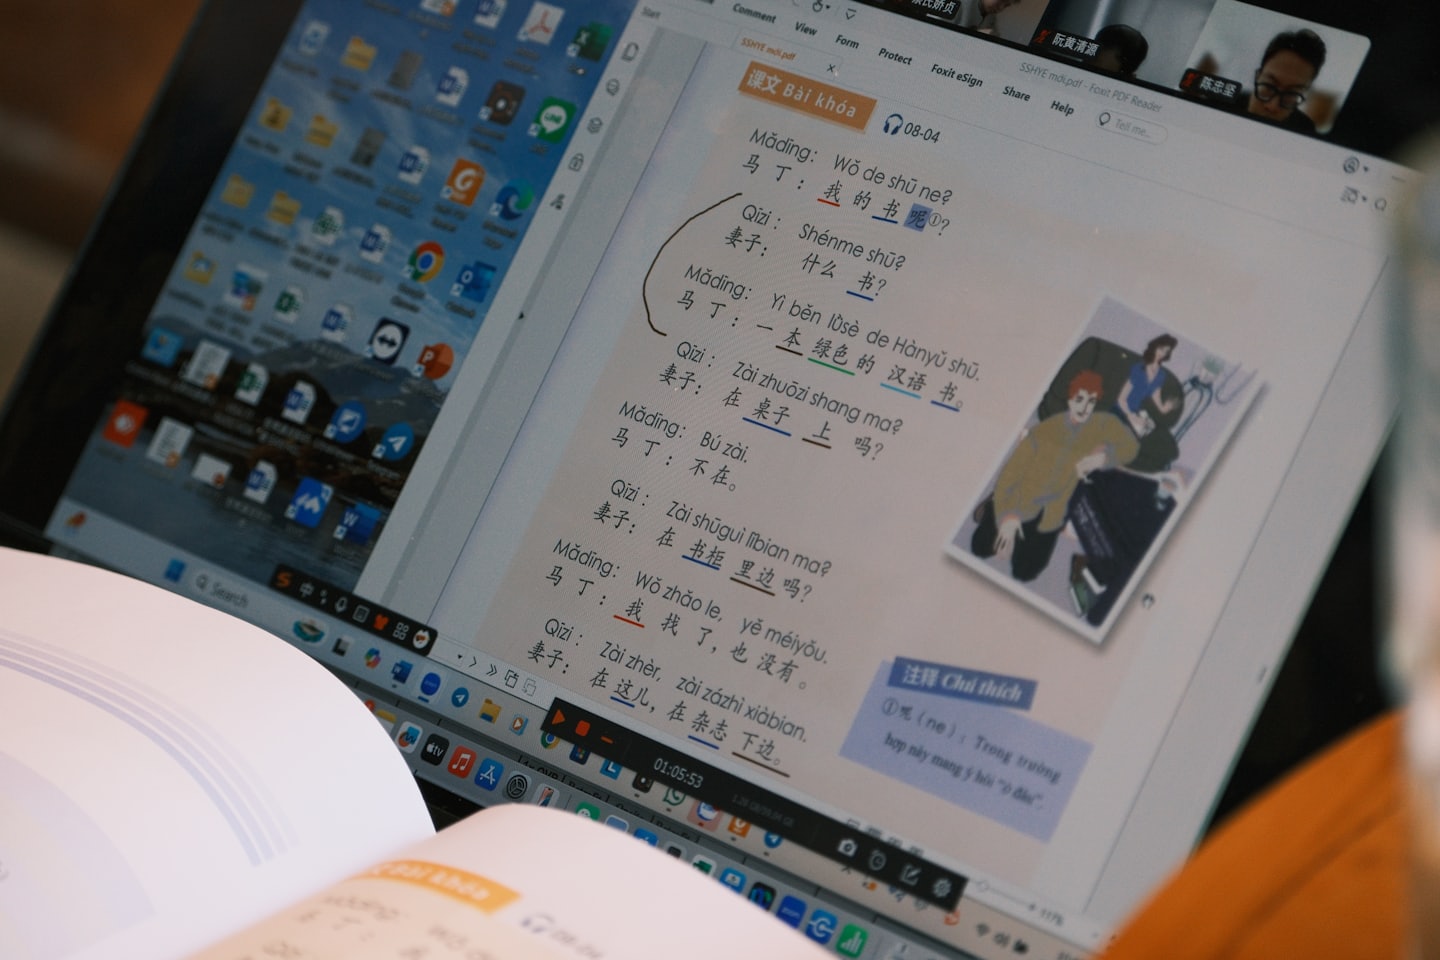 陈氏娇贞
阮黄清源
陈忠坚
Start
Comment
View
Form
Protect
Foxit eSign
Share
Help
Tell me...
SSHYE mới.pdf - Foxit PDF Reader
SSHYE mới.pdf
课文 Bài khóa
08-04
Mǎdīng: Wǒ de shū ne?
马丁: 我的书呢①?
Qīzi: Shénme shū?
妻子: 什么书?
Mǎdīng: Yì běn lǜsè de Hànyǔ shū.
马丁: 一本绿色的汉语书。
Qīzi: Zài zhuōzi shang ma?
妻子: 在桌子上吗?
Mǎdīng: Bú zài.
马丁: 不在。
Qīzi: Zài shūguì lǐbian ma?
妻子: 在书柜里边吗?
Mǎdīng: Wǒ zhǎo le, yě méiyǒu.
马丁: 我找了,也没有。
Qīzi: Zài zhèr, zài zázhì xiàbian.
妻子: 在这儿,在杂志下边。
注释 Chú thích
①呢(ne): Trong trường
hợp này mang ý hỏi "ở đâu".
Search
中
01:05:53
117%
Bài khóa
08-04